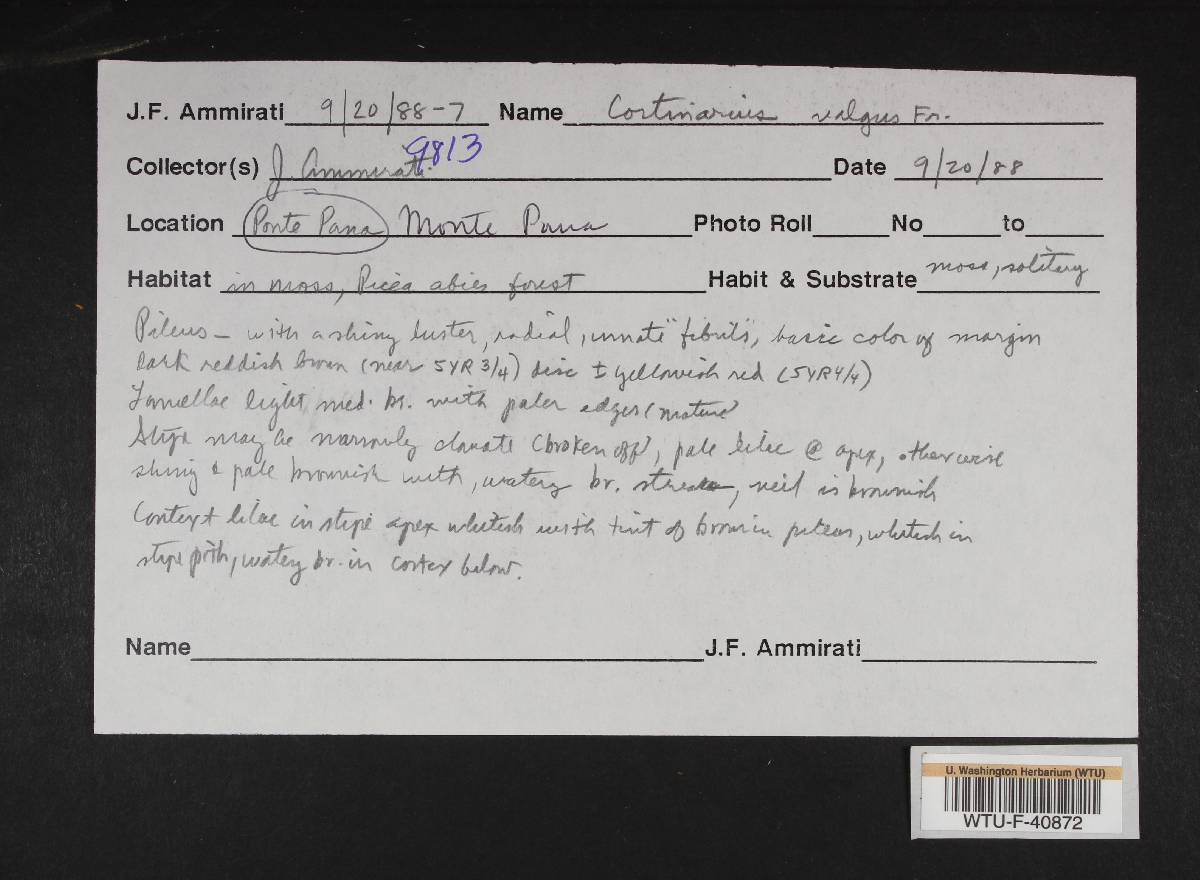 J.F. Ammirati 9/20/88-7 Name Cortinarius valgus Fr.
Collector(s) J. Ammirati 9813 Date 9/20/88
Location Ponte Pana Monte Pana Photo Roll No to
Habitat in moss, Picea abies forest Habit & Substrate moss, solitary
Pileus – with a shiny luster, radial, innate "fibrils", basic color of margin
Dark reddish brown (near 5YR 3/4) disc ± yellowish red (5YR 4/4)
Lamellae light med. br. with paler edges (mature)
Stipe may be narrowly clavate (broken off), pale lilac @ apex, otherwise
shiny & pale brownish with, watery br. streaks, veil is brownish
Context lilac in stipe apex whitish with tint of brown in pileus, whitish in
stipe pith, watery br. in cortex below.
Name J.F. Ammirati
U. Washington Herbarium (WTU)
WTU-F-40872